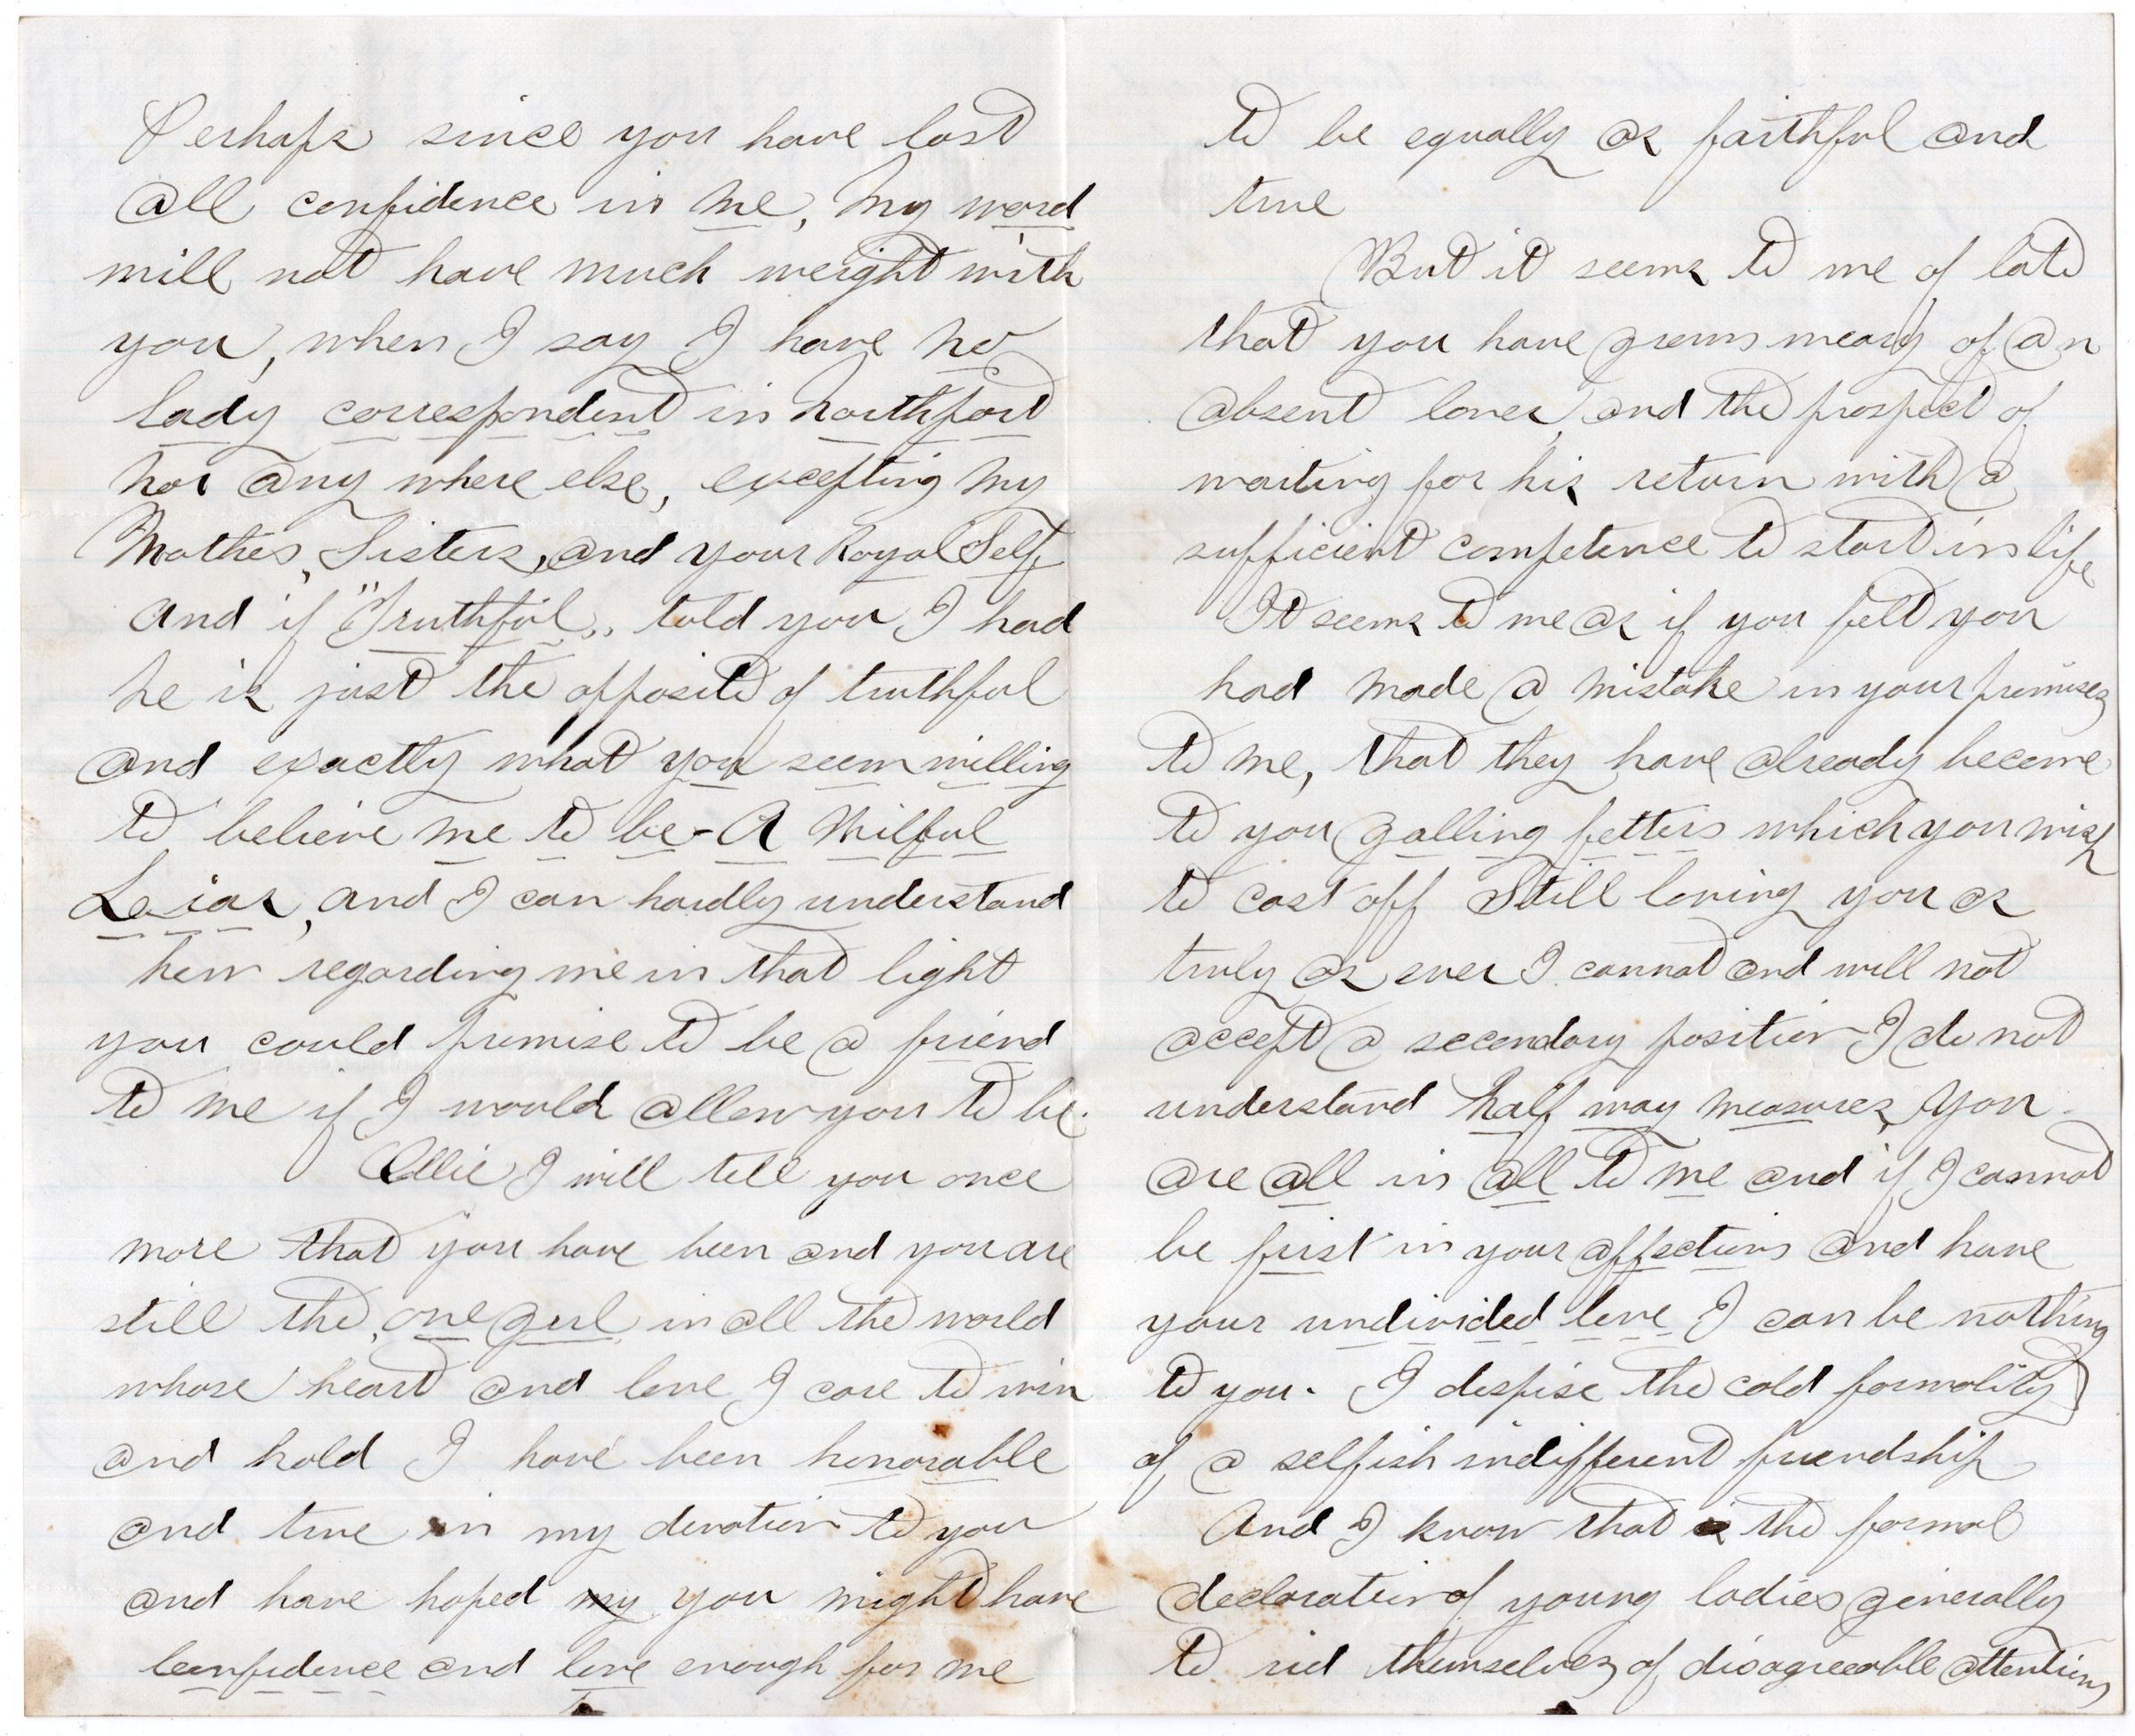 Perhaps since you have lost
all confidence in me, my word
will not have much weight with
you, when I say I have no
lady correspondent in Northport
nor any where else, excepting my
Mother, Sisters, and your Royal Self,
and if "Truthful" told you I had
he is just the opposite of truthful
and exactly what you seem willing
to believe me to be - A Wilful
Leiar, and I can hardly understand
how regarding me in that light
you could promise to be a friend
to me if I would allow you to be.
Ollie I will tell you once
more that you have been and you are
still the one girl in all the world
whose heart and love I care to win
and hold I have been honorable
and true in my devotion to you
and have hoped my you might have
confidence and love enough for me
to be equally as faithful and
true
But it seems to me of late
that you have grown weary of an
absent lover, and the prospect of
waiting for his return with a
sufficient competence to start in life
It seems to me as if you felt you
had made a mistake in your promises
to me, that they have already become
to you galling fetters which you wish
to cast off Still loving you as
truly as ever I cannot and will not
accept a secondary position I do not
understand half way measures, you
are all in all to me and if I cannot
be first in your affections and have
your undivided love I can be nothing
to you. I despise the cold formality
of a selfish indifferent friendship
And I know that is the formal
declaration of young ladies generally
to rid themselves of disagreeable attentions